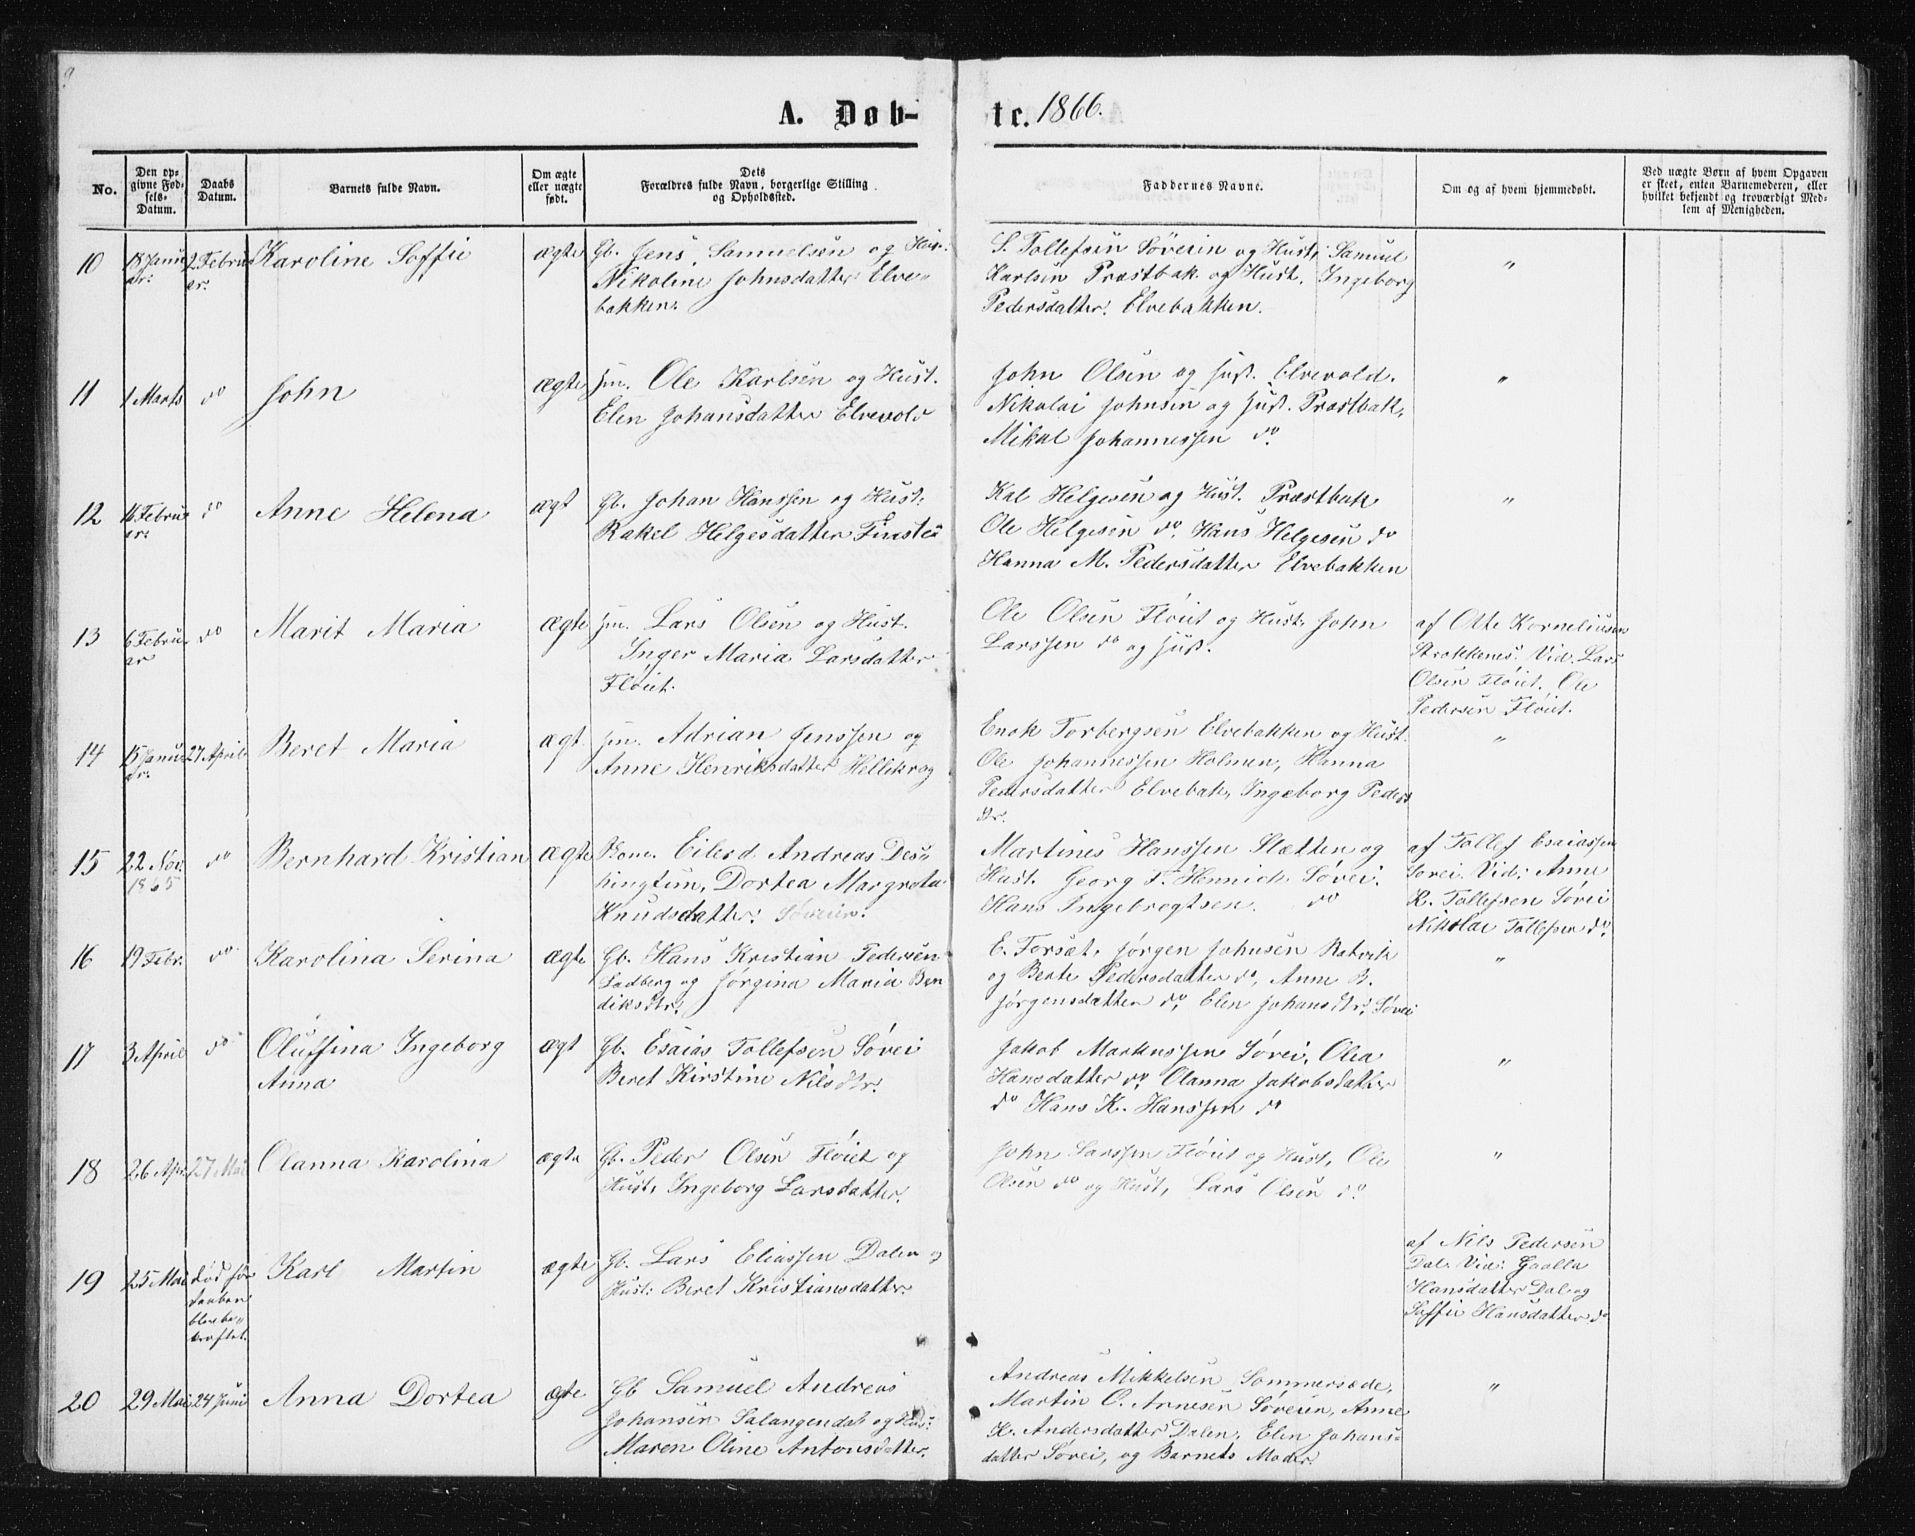 A. Døb-
te. 1866.
No.
Den op-
givne Fød-
sels-
Datum.
Daabs
Datum.
Barnets fulde Navn.
Om ægte
eller uægte
født.
Dets
Forældres fulde Navn, borgerlige Stilling
og Opholdssted.
Faddernes Navne.
Om og af hvem hjemmedøbt.
Ved uægte Børn af hvem Opgaven
er skeet, enten Barnemoderen, eller
hvilket bekjendt og troværdigt Med-
lem af Menigheden.
10
18 Janu
ar.
2 Febru
ar.
Karoline Soffie
ægte
Gb. Jens Samuelsen og Hust.
Nikoline Johnsdatter Elve-
bakken.
S. Tollefsen Søveien og Hust, Samuel
Karlsen Præstbak og Hust. Ingeborg
Pedersdatter. Elvebakken.
"
11
1 Marts
do
John
ægte
Jm. Ole Karlsen og Hust.
Elen Johansdatter Elvevold
John Olsen og Hust. Elvevold.
Nikolai Johnsen og Hust. Præstbak,
Mikal Johannessen do.
"
12
16 Febru
ar.
do
Anne Helena
ægt
Gb. Johan Hanssen og Hust.
Rakel Helgesdatter
Kal Helgesen og Hust. Præstbak
Ole Helgesen do. Hans Helgesen do
Hanna M. Pedersdatter Elvebakken
"
13
6 Febru
ar
do
Marit Maria
ægte
Jm. Lars Olsen og Hust.
Inger Maria Larsdatter
Fløiet.
Ole Olsen Fløiet og Hust. John
Larssen do og Hust.
af Otte Korneliusen
Strokkenes. Vid. Lars
Olsen Fløiet. Ole
Pedersen Fløiet.
14
15 Janu
ar.
27 April
Beret Maria
ægt
Jm. Adrian Jenssen og
Anne Henriksdatter Hellikrog
Enok Torbergsen Elvebakken og Hust.
Ole Johannessen Holmen, Hanna
Pedersdatter Elvebak, Ingeborg Peders
dtr.
"
15
22 Nov.
1865
do
Bernhard Kristian
ægte
Eilerd Andreas Des-
hington, Dortea Margreta
Knudsdatter. Søveien.
Martines Hanssen Slætten og
Hust. Georg F. Hennich. Søvei.
Hans Ingebrogtsen. do
af Tollef Esaiassen
Sovei. Vid: Anne
K. Tollefsen Søvei
Nikolai Tollefsen do.
16
19 Febr.
do
Karolina Serina
ægte
Gb. Hans Kristian Pedersen
Ladberg og Jørgina Maria Ben
diksdtr.
E. Forsæt, Jørgen Johnsen Ratvik
og Berte Pedersdatter do, Anne B.
Jørgensdatter do, Elen Johansdtr, Søvei
"
17
3 April
do
Oluffina Ingeborg
Anna
ægt
Gb. Esaias Tollefsen Søvei
Beret Kirstine Nilsdtr.
Jakob Markussen Søvei, Olea
Hansdatter do. Olanna Jakobsdatter
do Hans K. Hanssen do
"
18
26 Apr.
27 Mai
Olanna Karolina
ægte
Gb. Peder Olsen Fløiet og
Hust, Ingeborg Larsdatter.
John Larssen Fløiet og Hust, Ole
Olsen do og Hust, Lars Olsen do.
"
19
25 Mai
død før
daaben
blev be-
kræftet.
Karl Martin
ægte
Gb. Lars Eliassen Dalen og
Hust: Beret Kristiansdatter.
af Nils Pedersen
Dal. Vid:
Hansdatter Dal og
Soffie Hansdatter do
20
29 Mai
24 Juni
Anna Dortea
ægte
Gb Samuel Andreas
Johansen Salangendal og Hus:
Maren Oline Antonsdatter.
Andreas Mikkelsen Sommersæde,
Martin O. Arnesen Søveien, Anne
K. Andersdatter Dalen. Elen Johans-
datter Søvei, og Barnets Moder.
"